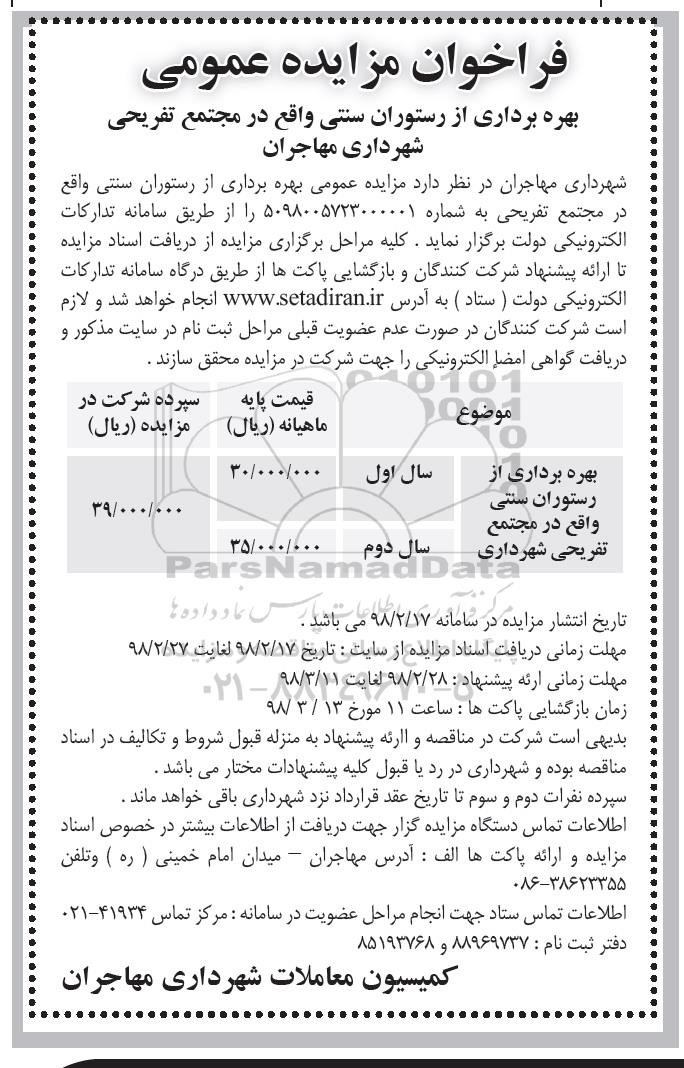 فراخوان مزایده عمومی
بهره برداری از رستوران سنتی واقع در مجتمع تفریحی
شهرداری مهاجران
شهرداری مهاجران در نظر دارد مزایده عمومی بهره برداری از رستوران سنتی واقع
در مجتمع تفریحی به شماره ۵۰۹۸۰۰۵۷۲۳۰۰۰۰۰۱ را از طریق سامانه تدارکات
الکترونیکی دولت برگزار نماید . کلیه مراحل برگزاری مزایده از دریافت اسناد مزایده
تا ارائه پیشنهاد شرکت کنندگان و بازگشایی پاکت ها از طریق درگاه سامانه تدارکات
الکترونیکی دولت ( ستاد ) به آدرس www.setadiran.ir انجام خواهد شد و لازم
است شرکت کنندگان در صورت عدم عضویت قبلی مراحل ثبت نام در سایت مذکور و
دریافت گواهی امضإ الکترونیکی را جهت شرکت در مزایده محقق سازند .
موضوع
قیمت پایه
ماهیانه (ریال)
سپرده شرکت در
مزایده (ریال)
بهره برداری از
رستوران سنتی
واقع در مجتمع
تفریحی شهرداری
سال اول
۳۰/۰۰۰/۰۰۰
سال دوم
۳۵/۰۰۰/۰۰۰
۳۹/۰۰۰/۰۰۰
ParsNamadData
مرکز فرآوری اطلاعات پارس نماد داده ها
تاریخ انتشار مزایده در سامانه ۹۸/۲/۱۷ می باشد .
مهلت زمانی دریافت اسناد مزایده از سایت : تاریخ ۹۸/۲/۱۷ لغایت ۹۸/۲/۲۷
مهلت زمانی ارئه پیشنهاد : ۹۸/۲/۲۸ لغایت ۹۸/۳/۱۱
۰۲۱-۸۸۳۴۹۶۷۰-۵
زمان بازگشایی پاکت ها : ساعت ۱۱ مورخ ۱۳ / ۳ /۹۸
بدیهی است شرکت در مناقصه و اارئه پیشنهاد به منزله قبول شروط و تکالیف در اسناد
مناقصه بوده و شهرداری در رد یا قبول کلیه پیشنهادات مختار می باشد .
سپرده نفرات دوم و سوم تا تاریخ عقد قرارداد نزد شهرداری باقی خواهد ماند .
اطلاعات تماس دستگاه مزایده گزار جهت دریافت از اطلاعات بیشتر در خصوص اسناد
مزایده و ارائه پاکت ها الف : آدرس مهاجران – میدان امام خمینی ( ره ) وتلفن
۰۸۶-۳۸۶۲۳۳۵۵
اطلاعات تماس ستاد جهت انجام مراحل عضویت در سامانه : مرکز تماس ۴۱۹۳۴-۰۲۱
دفتر ثبت نام : ۸۸۹۶۹۷۳۷ و ۸۵۱۹۳۷۶۸
کمیسیون معاملات شهرداری مهاجران